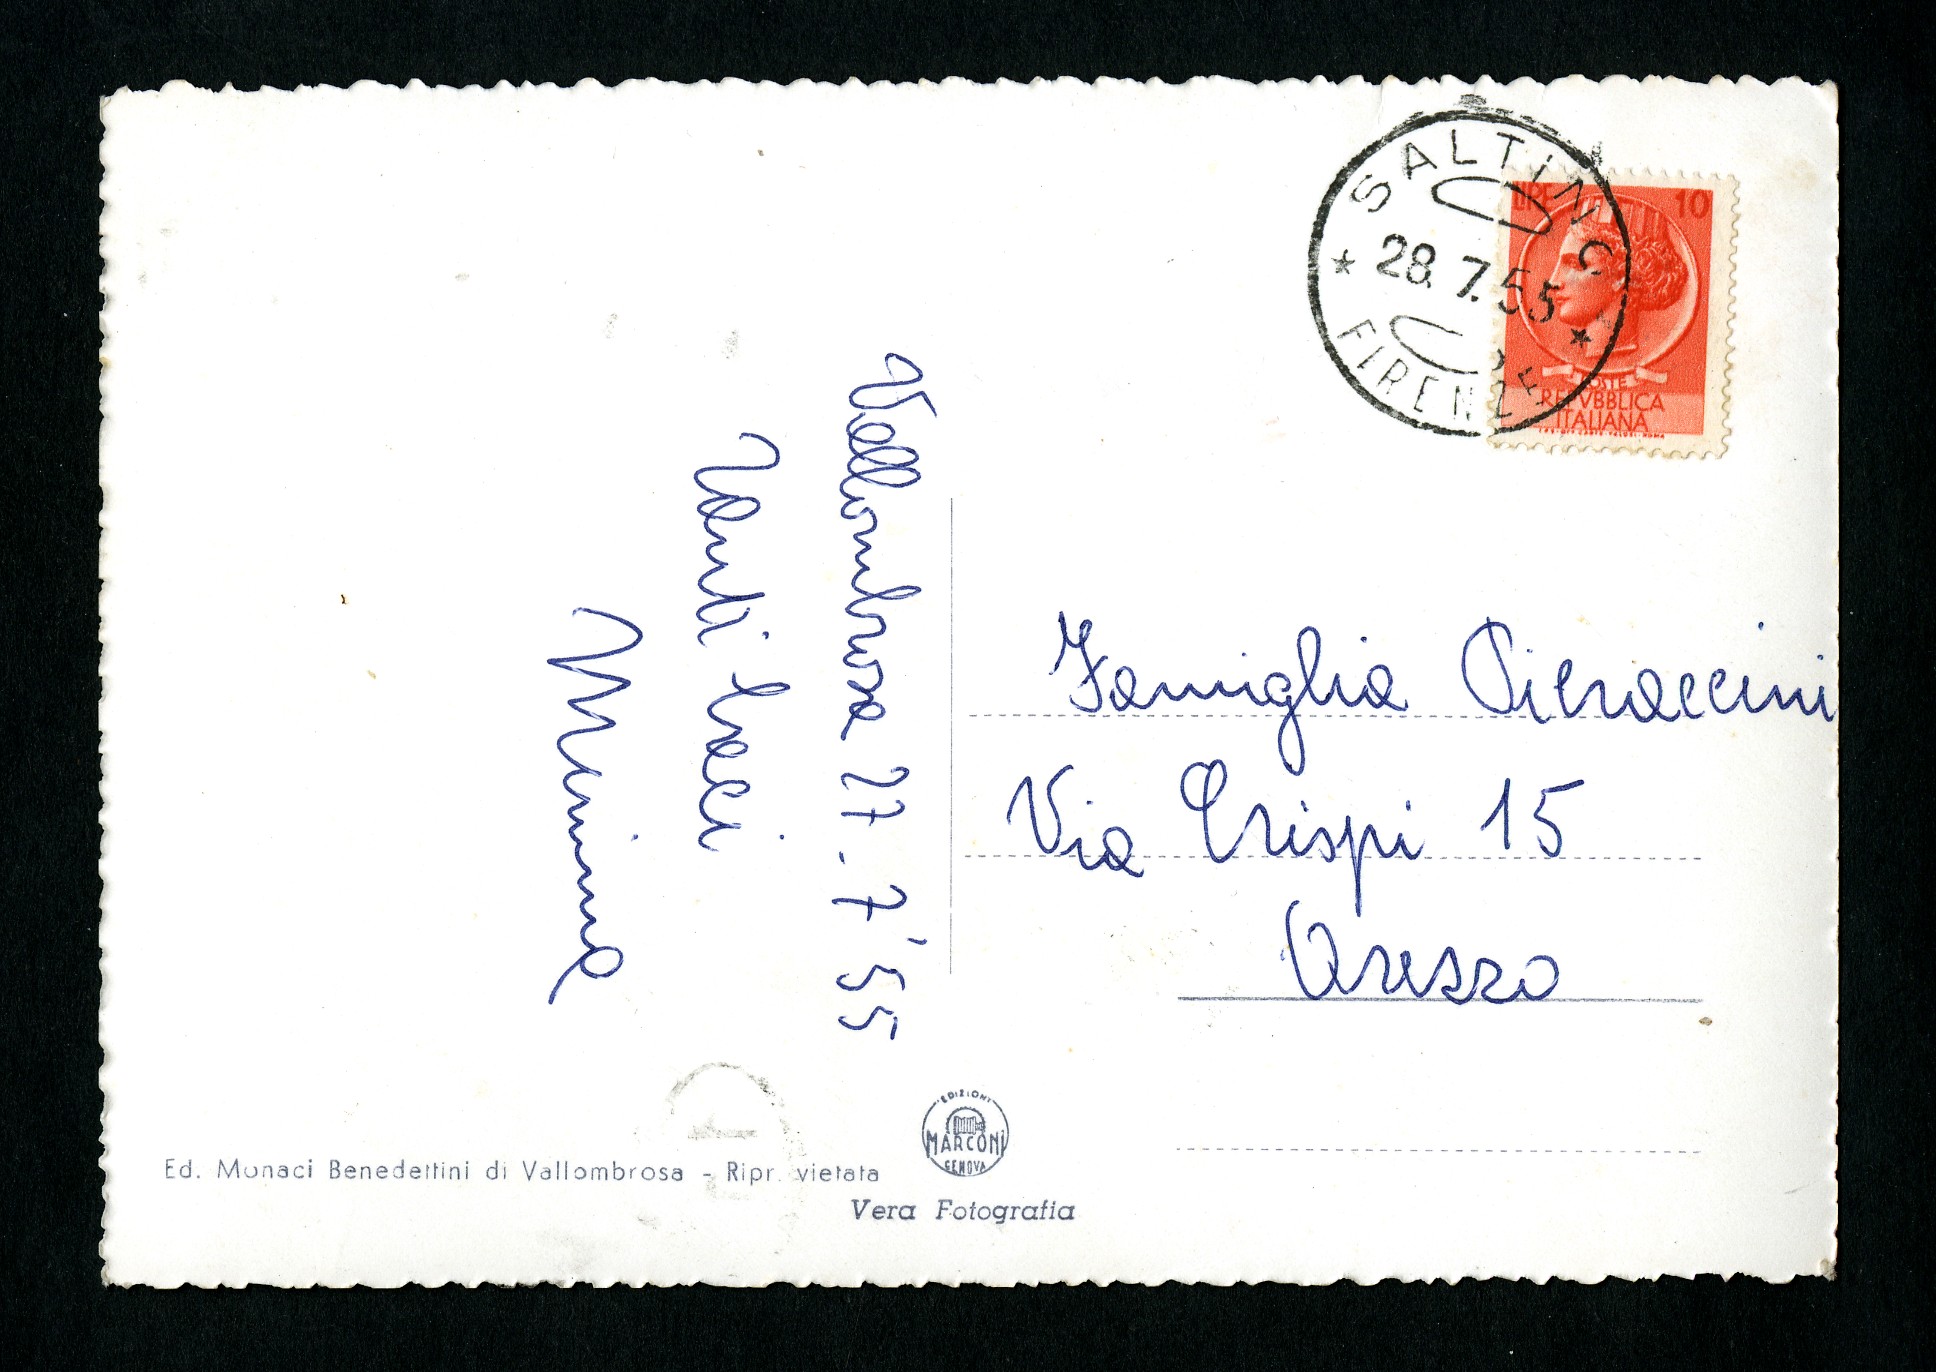 Vallombrosa 27-7'55
Tanti baci
Mimma
SALTINO
28.7.55
FIRENZE
LIRE 10
POSTE
REPVBBLICA
ITALIANA
Famiglia Pieraccini
Via Crispi 15
Arezzo
EDIZIONI
MARCONI
GENOVA
Ed. Monaci Benedettini di Vallombrosa - Ripr. vietata
Vera Fotografia